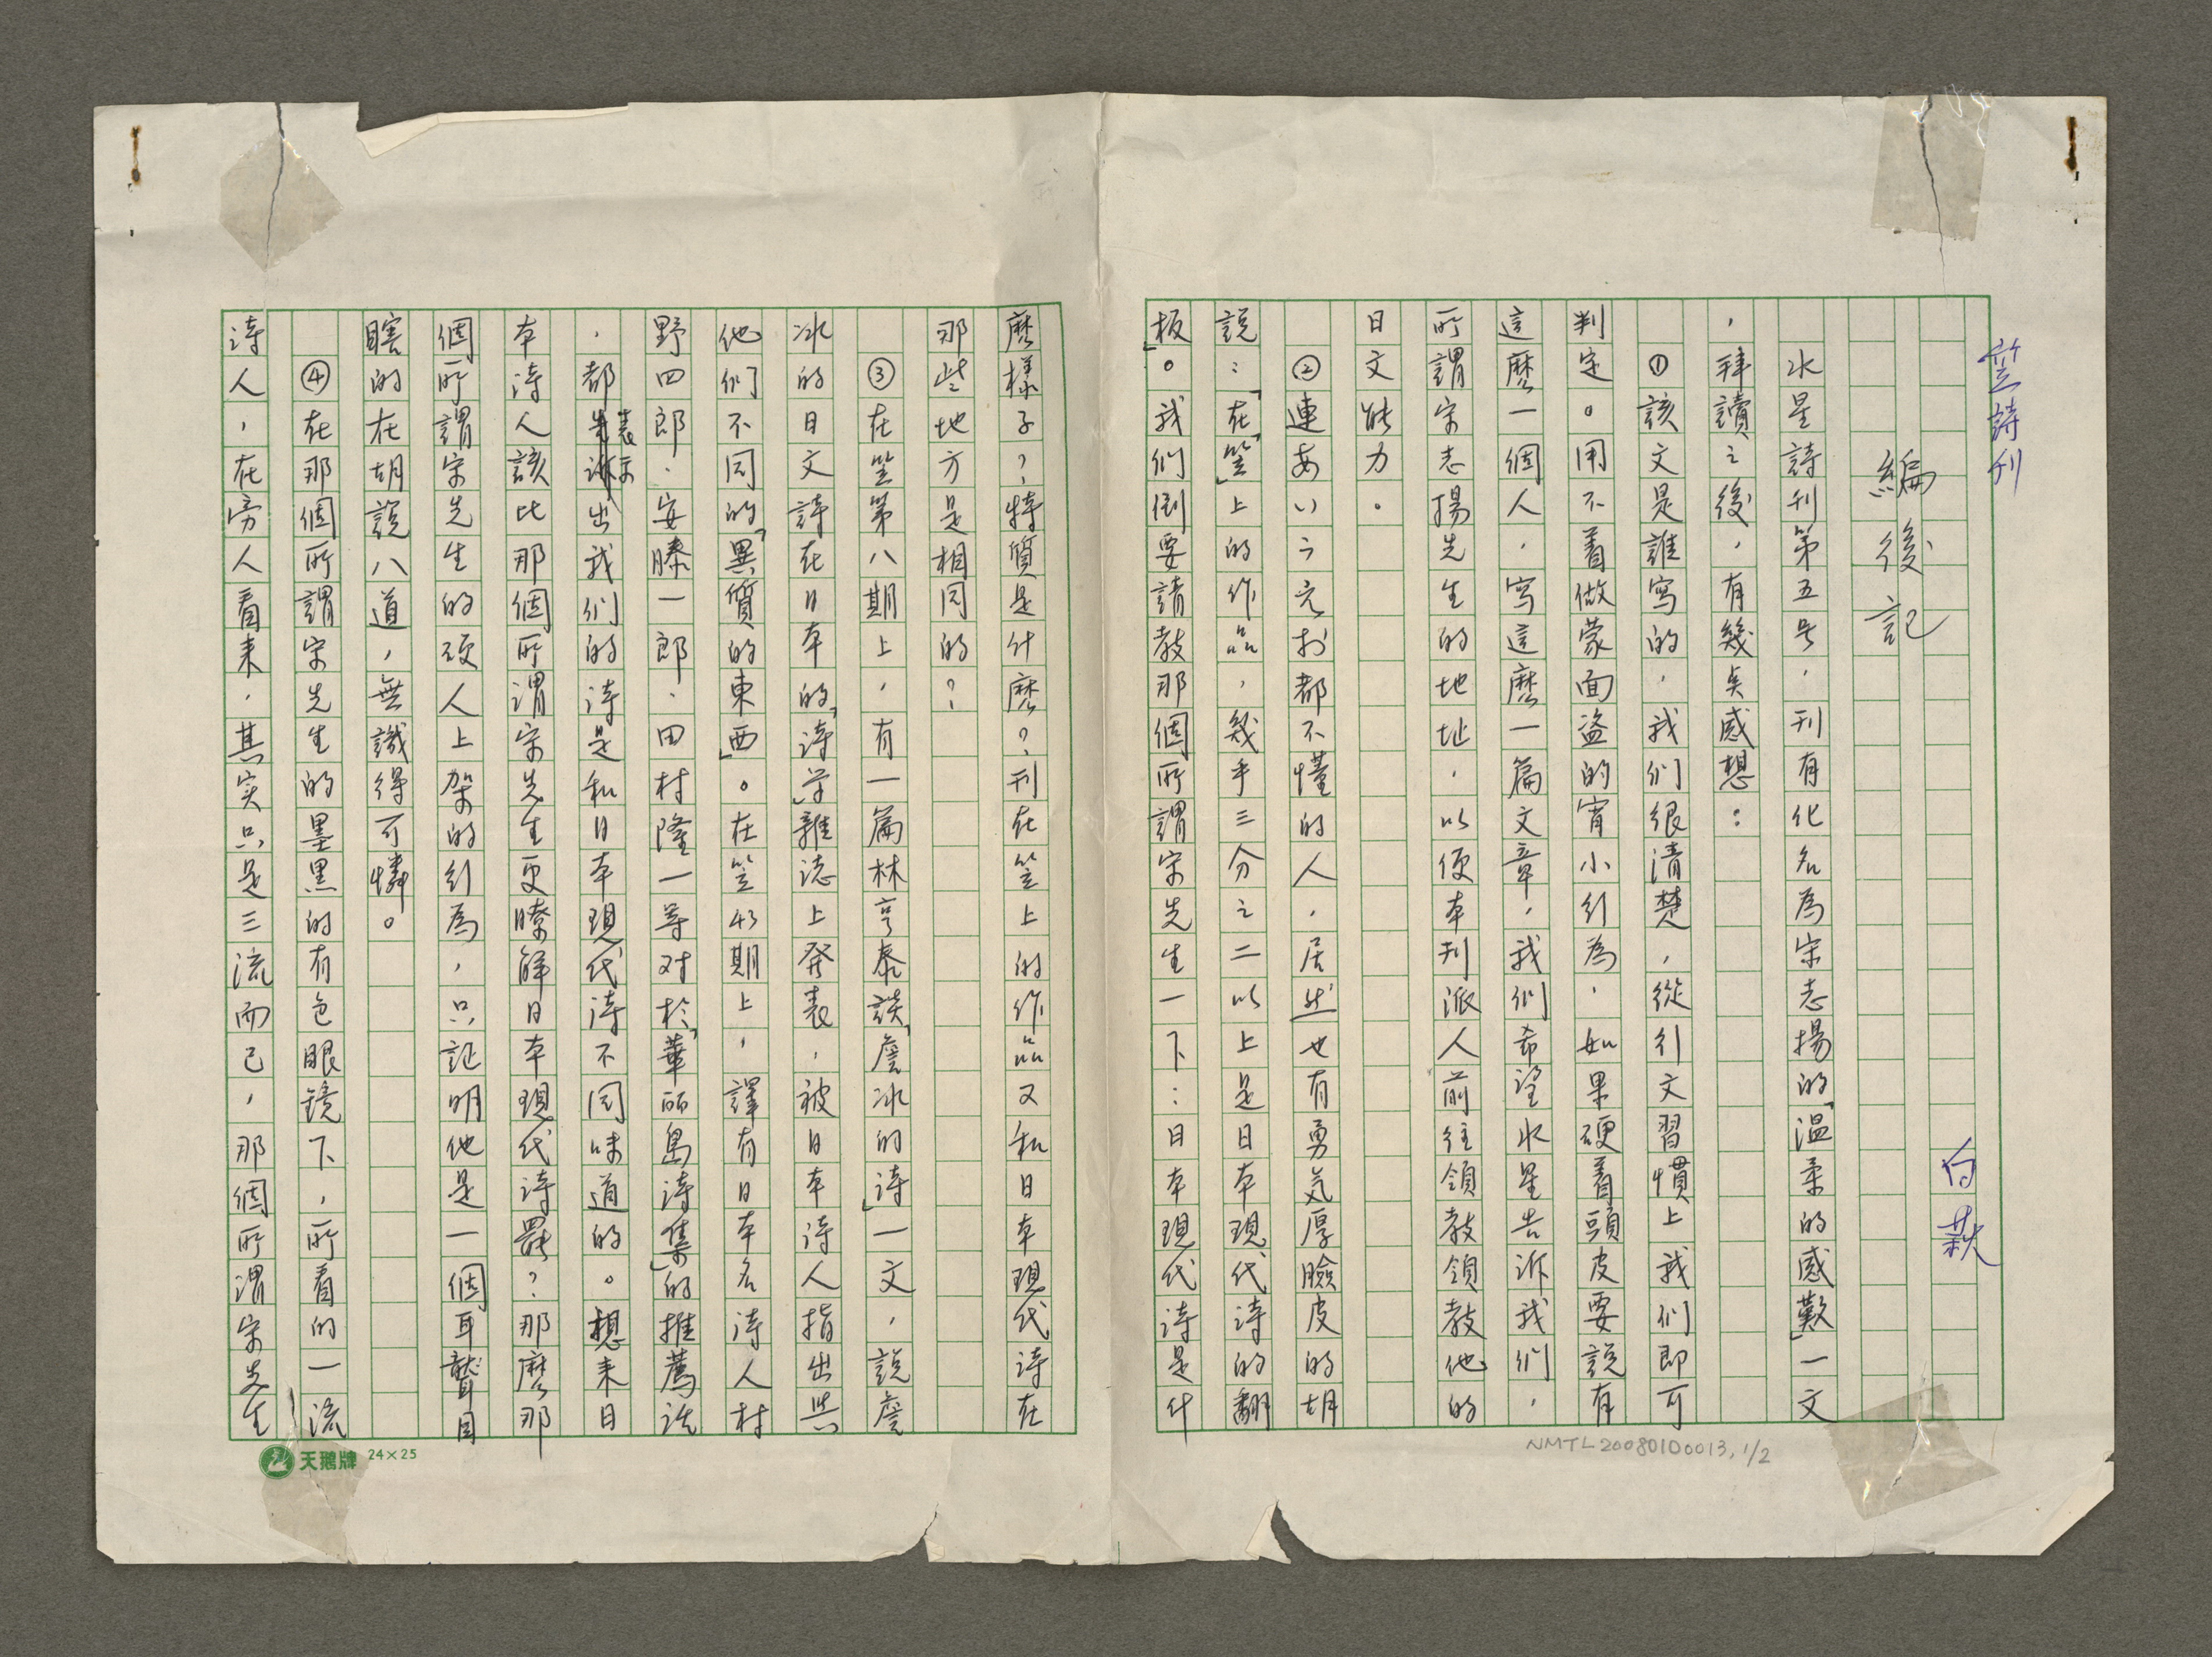 笠詩刊
白萩
編後記
水星詩刊第五号，刊有化名為宋志揚的「溫柔的感歎」一文
，拜讀之後，有幾矣感想：
①該文是誰寫的，我们很清楚，從行文習慣上我们即可
判定。用不着做蒙面盗的宵小行為，如果硬着頭皮要説有
這麽一個人，写這麽一篇文章，我们希望水星告訴我们，
所謂宋志揚先生的地址，以便本刊派人前往領教領教他的
日文能力。
②連あいう元お都不懂的人，居然也有勇気厚臉皮的胡
説：「在『笠』上的作品，幾乎三分之二以上是日本現代詩的翻
板」。我们倒要請教那個所謂宋先生一下：日本現代詩是什
麽樣子？特質是什麽？刊在笠上的作品又和日本現代詩在
那些地方是相同的？
③在笠第八期上，有一篇林亨泰談「詹冰的詩」一文，説詹
冰的日文詩在日本的「詩学」雜誌上発表，被日本詩人指出與
他们不同的「異質的東西」。在笠43期上，譯有日本名詩人村
野四郎、安滕一郎、田村隆一等对於「華丽島詩集」的推薦語
，都表示出我们的詩是和日本現代詩不同味道的。想来日
本詩人該比那個所謂宋先生更瞭解日本現代詩罷？那麽那
個所謂宋先生的硬人上架的行為，只証明他是一個耳聾目
瞎的在胡説八道，無識得可憐。
④在那個所謂宋先生的墨黒的有色眼鏡下，所看的一流
詩人，在旁人看来，其实只是三流而已，那個所謂宋先生
天鵝牌 24×25
NMTL20080100013, 1/2